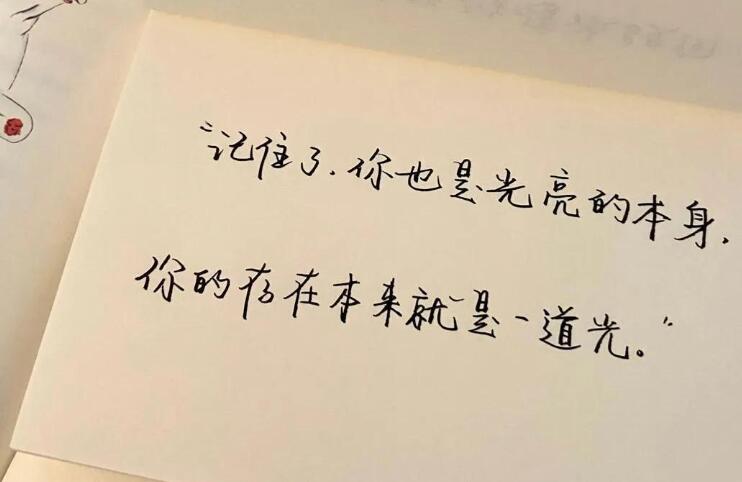 “记住了,你也是光亮的本身,
你的存在本来就是一道光。”